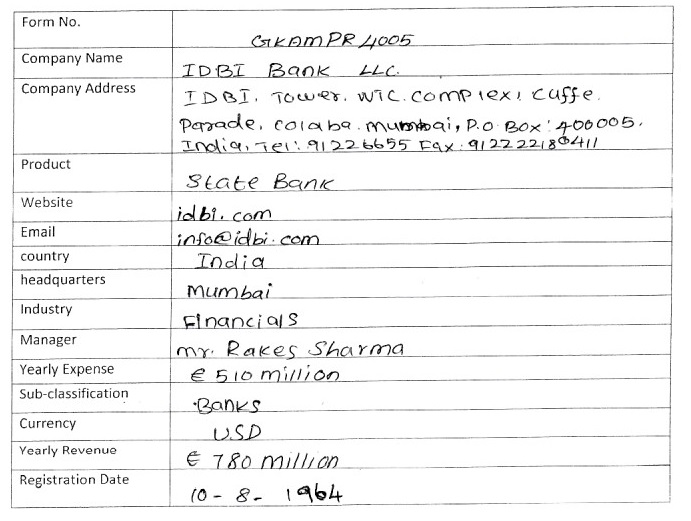 Form No.
GKAMPR4005
Company Name
IDBI Bank LLC.
Company Address
IDBI. Tower. WTC. Complex, Cuffe.
Parade. colaba. mumbai, P.O Box: 400005.
India, Tel: 91226655 Fax: 912222180411
Product
State Bank
Website
idbi.com
Email
info@idbi.com
country
India
headquarters
mumbai
Industry
Financials
Manager
mr. Rakes Sharma
Yearly Expense
€ 510 million
Sub-classification
Banks
Currency
USD
Yearly Revenue
€ 780 million
Registration Date
10-8-1964